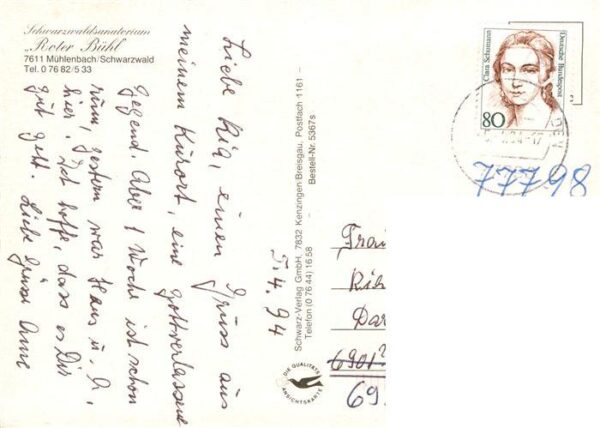 Schwarzwaldsanatorium
„Roter Bühl"
7611 Mühlenbach/Schwarzwald
Tel. 0 76 82/5 33
Liebe Ria, einen Gruss aus
meinem Kurort, eine gottverlassene
Gegend. Aber 1 Woche ist schon
rum, gestern war Hans u. A.
hier. Ich hoffe, dass es Dir
gut geht. Liebe Grüsse Anne
5.4.94
Schwarz-Verlag GmbH, 7832 Kenzingen Breisgau, Postfach 1161 –
Telefon (0 76 44) 16 58 – Bestell-Nr. 5367s
DIE QUALITÄTS
ANSICHTSKARTE
Clara Schumann
Deutsche Bundespost
80
77798
Frau
Dar
6901
69